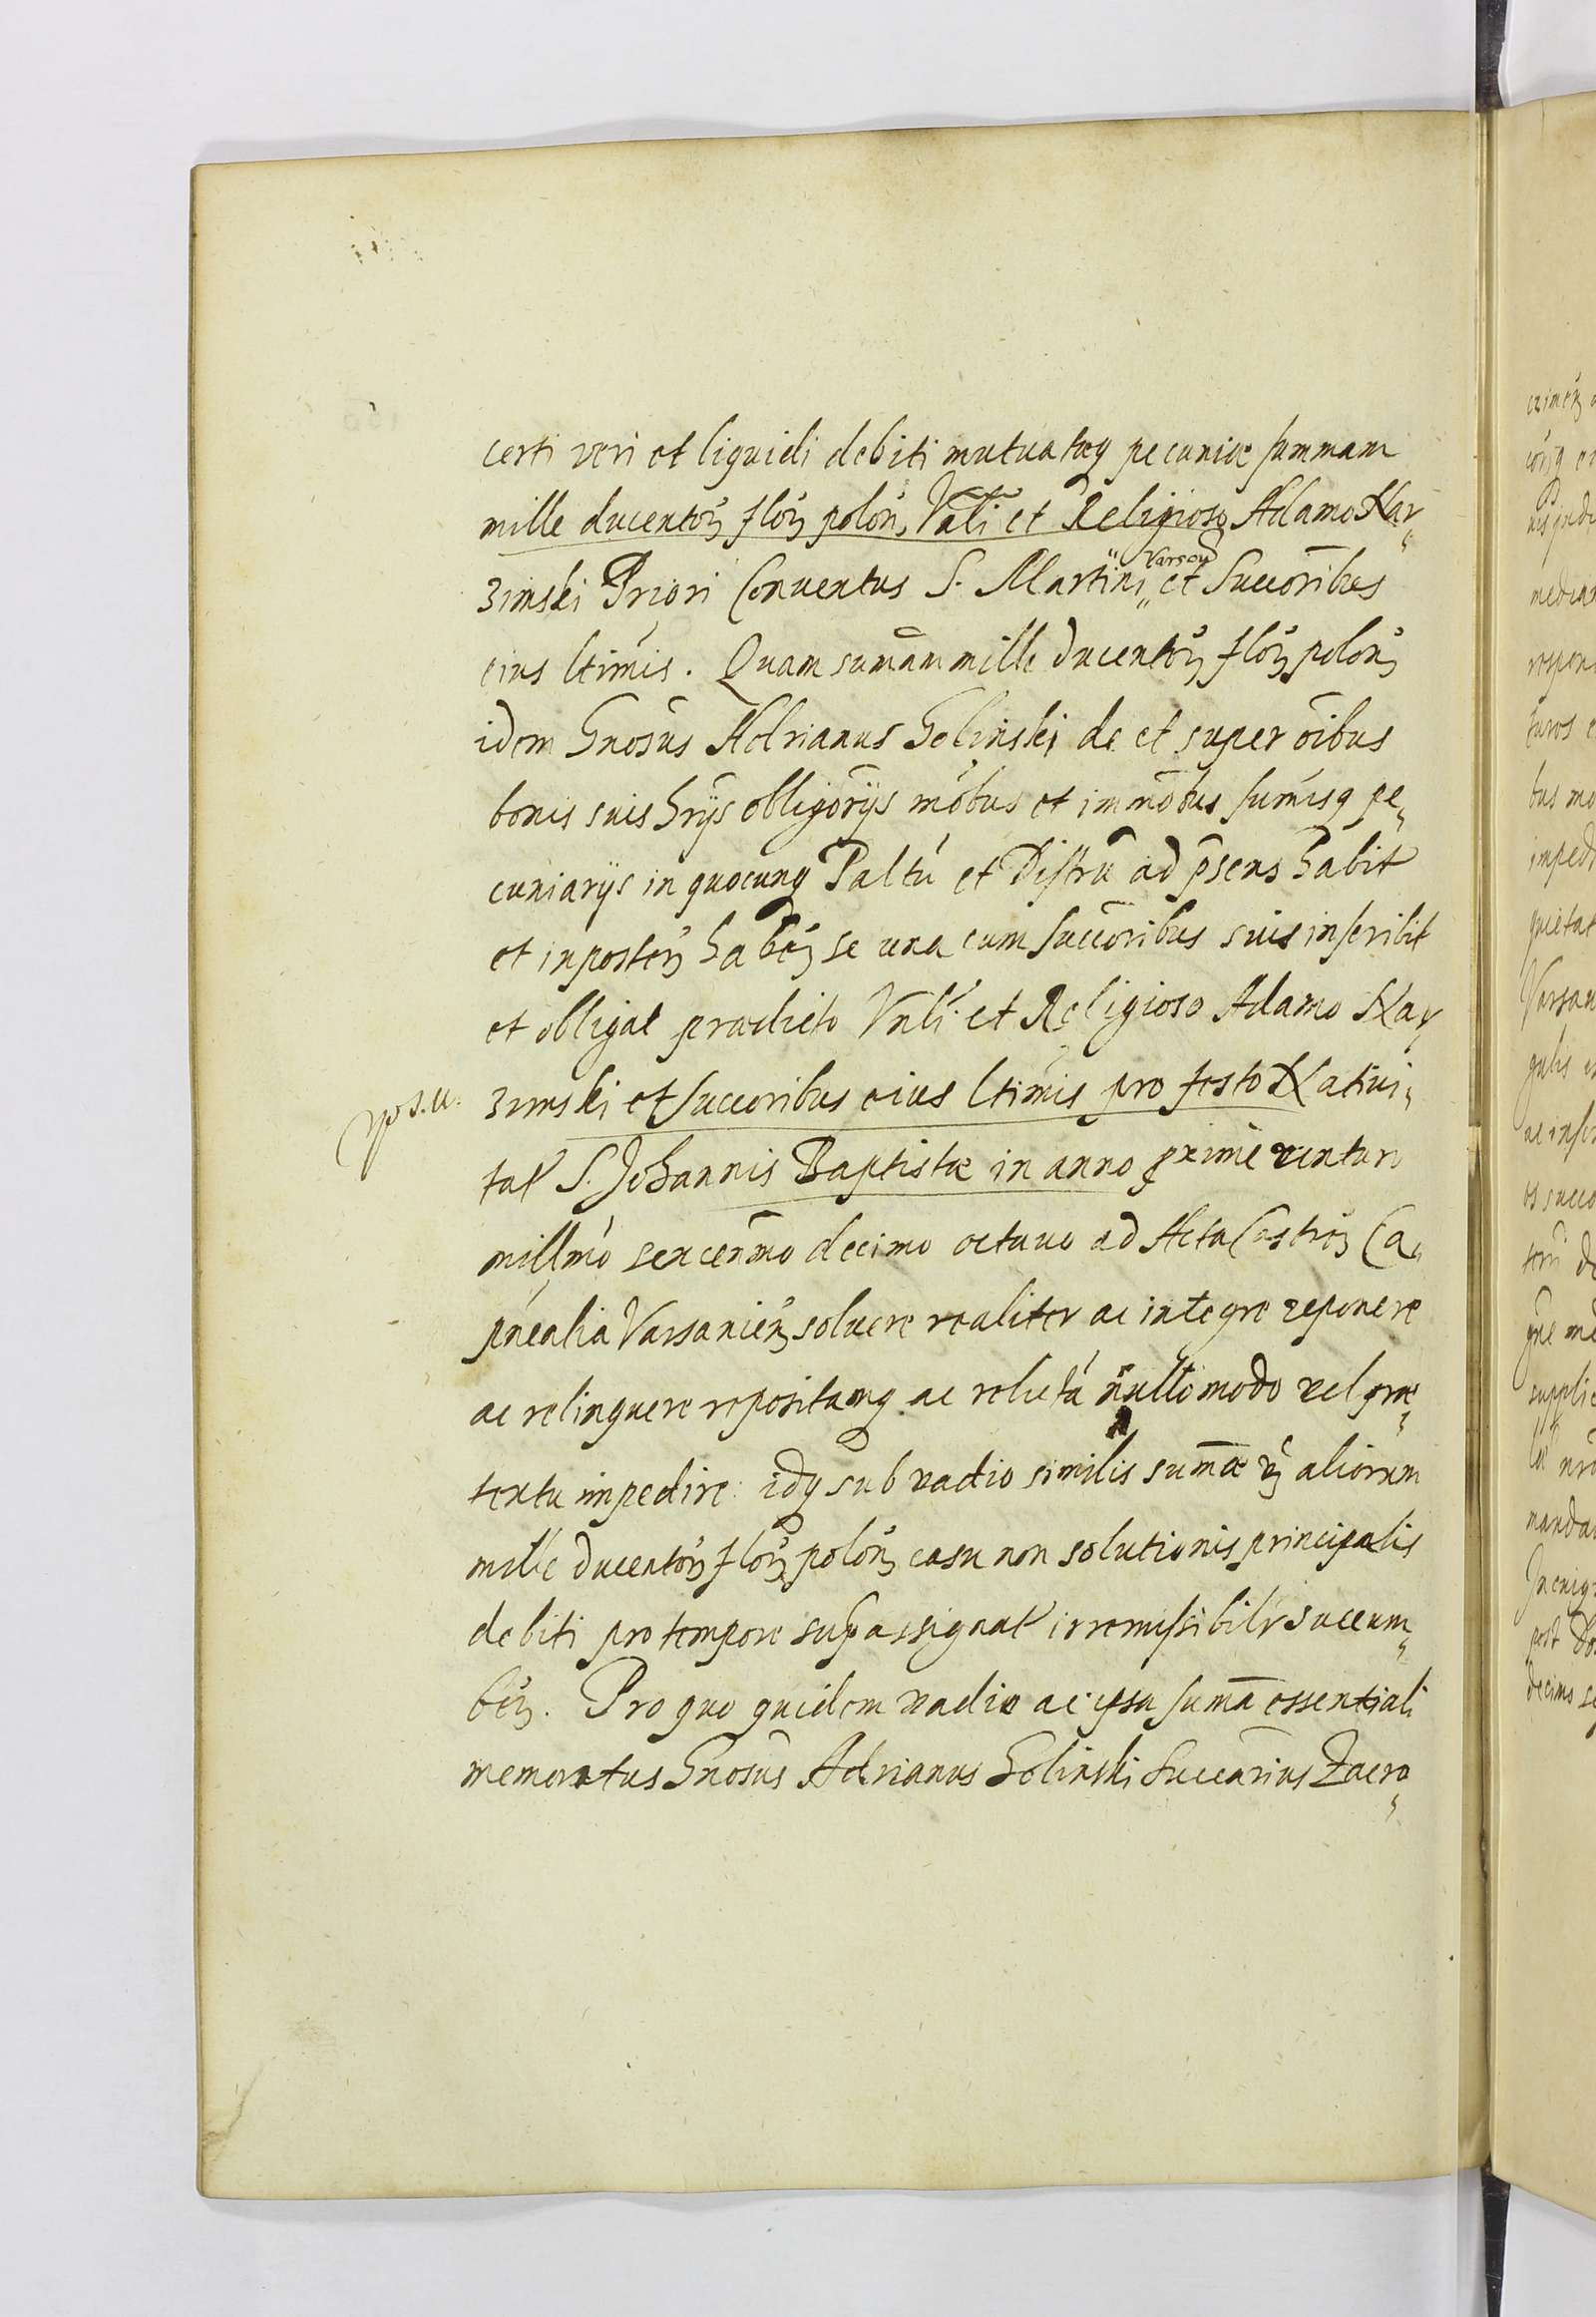 certi veri et liquidi debiti mutuatæq pecuniæ summam
mille ducentor̃ flor̃ polon̄, Vnli et Religioso Adamo Nar„
zimski Priori Conuentus S. Martini „ Varsou et Succoribus
eius ltimis. Quam sum̄am mille ducentor̃ flor̃ polon̄
idem Gnosus Adrianus Golinski de et super oībus
bonis suis hrijs obligorijs mobus et immobus sum̄isq pe„
cuniarijs in quocunq Paltu et Distru ad p̄sens habit
et inposter̃ haben̄ se una cum succoribus suis inscribit
et obligat prædicto Vnli et Religioso Adamo Nar„
zimski et succoribus eius ltimis pro festo Natiui„
tat S. Johannis Baptistæ in anno proxime venturo
millmo sexcenmo decimo octauo ad Acta Castren̄ Ca„
pnealia Varsauien̄ soluere realiter ac integre reponere
ac relinquere repositamq ac relictá nullo modo vel præ„
textu impedire idq sub vadio similis sum̄æ aliorum
mille ducentor̃ flor̃ polon̄ casu non solutionis principalis
debiti pro tempore sup assignat irremissibilr succum„
ben̄. Pro quo quidem vadio ac ipsa sum̄a essentiali
memoratus Gnosus Adrianus Golinski Succarius Zacro„